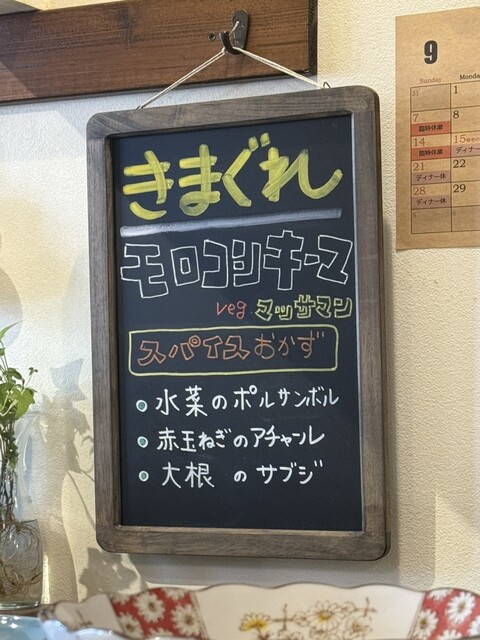 きまぐれ
モロコシキーマ
veg. マッサマン
スパイスおかず
水菜のポルサンボル
赤玉ねぎのアチャール
大根 のサブジ
9
Sunday Monda
31 1
7 8
臨時休業
14 15
臨時休業 ディナー
21 22
ディナー休
28 29
ディナー休